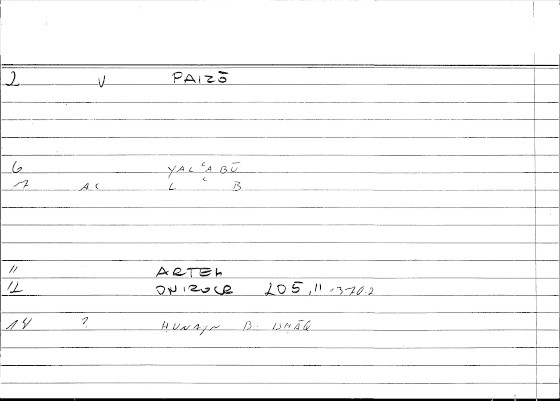 2 V PAIZŌ
6 YALʿABŪ
7 AC L ʿ B
11 ARTEM
12 ONIROCR 205,11 - 370.2
14 ? HUNAYN B. ISHĀQ